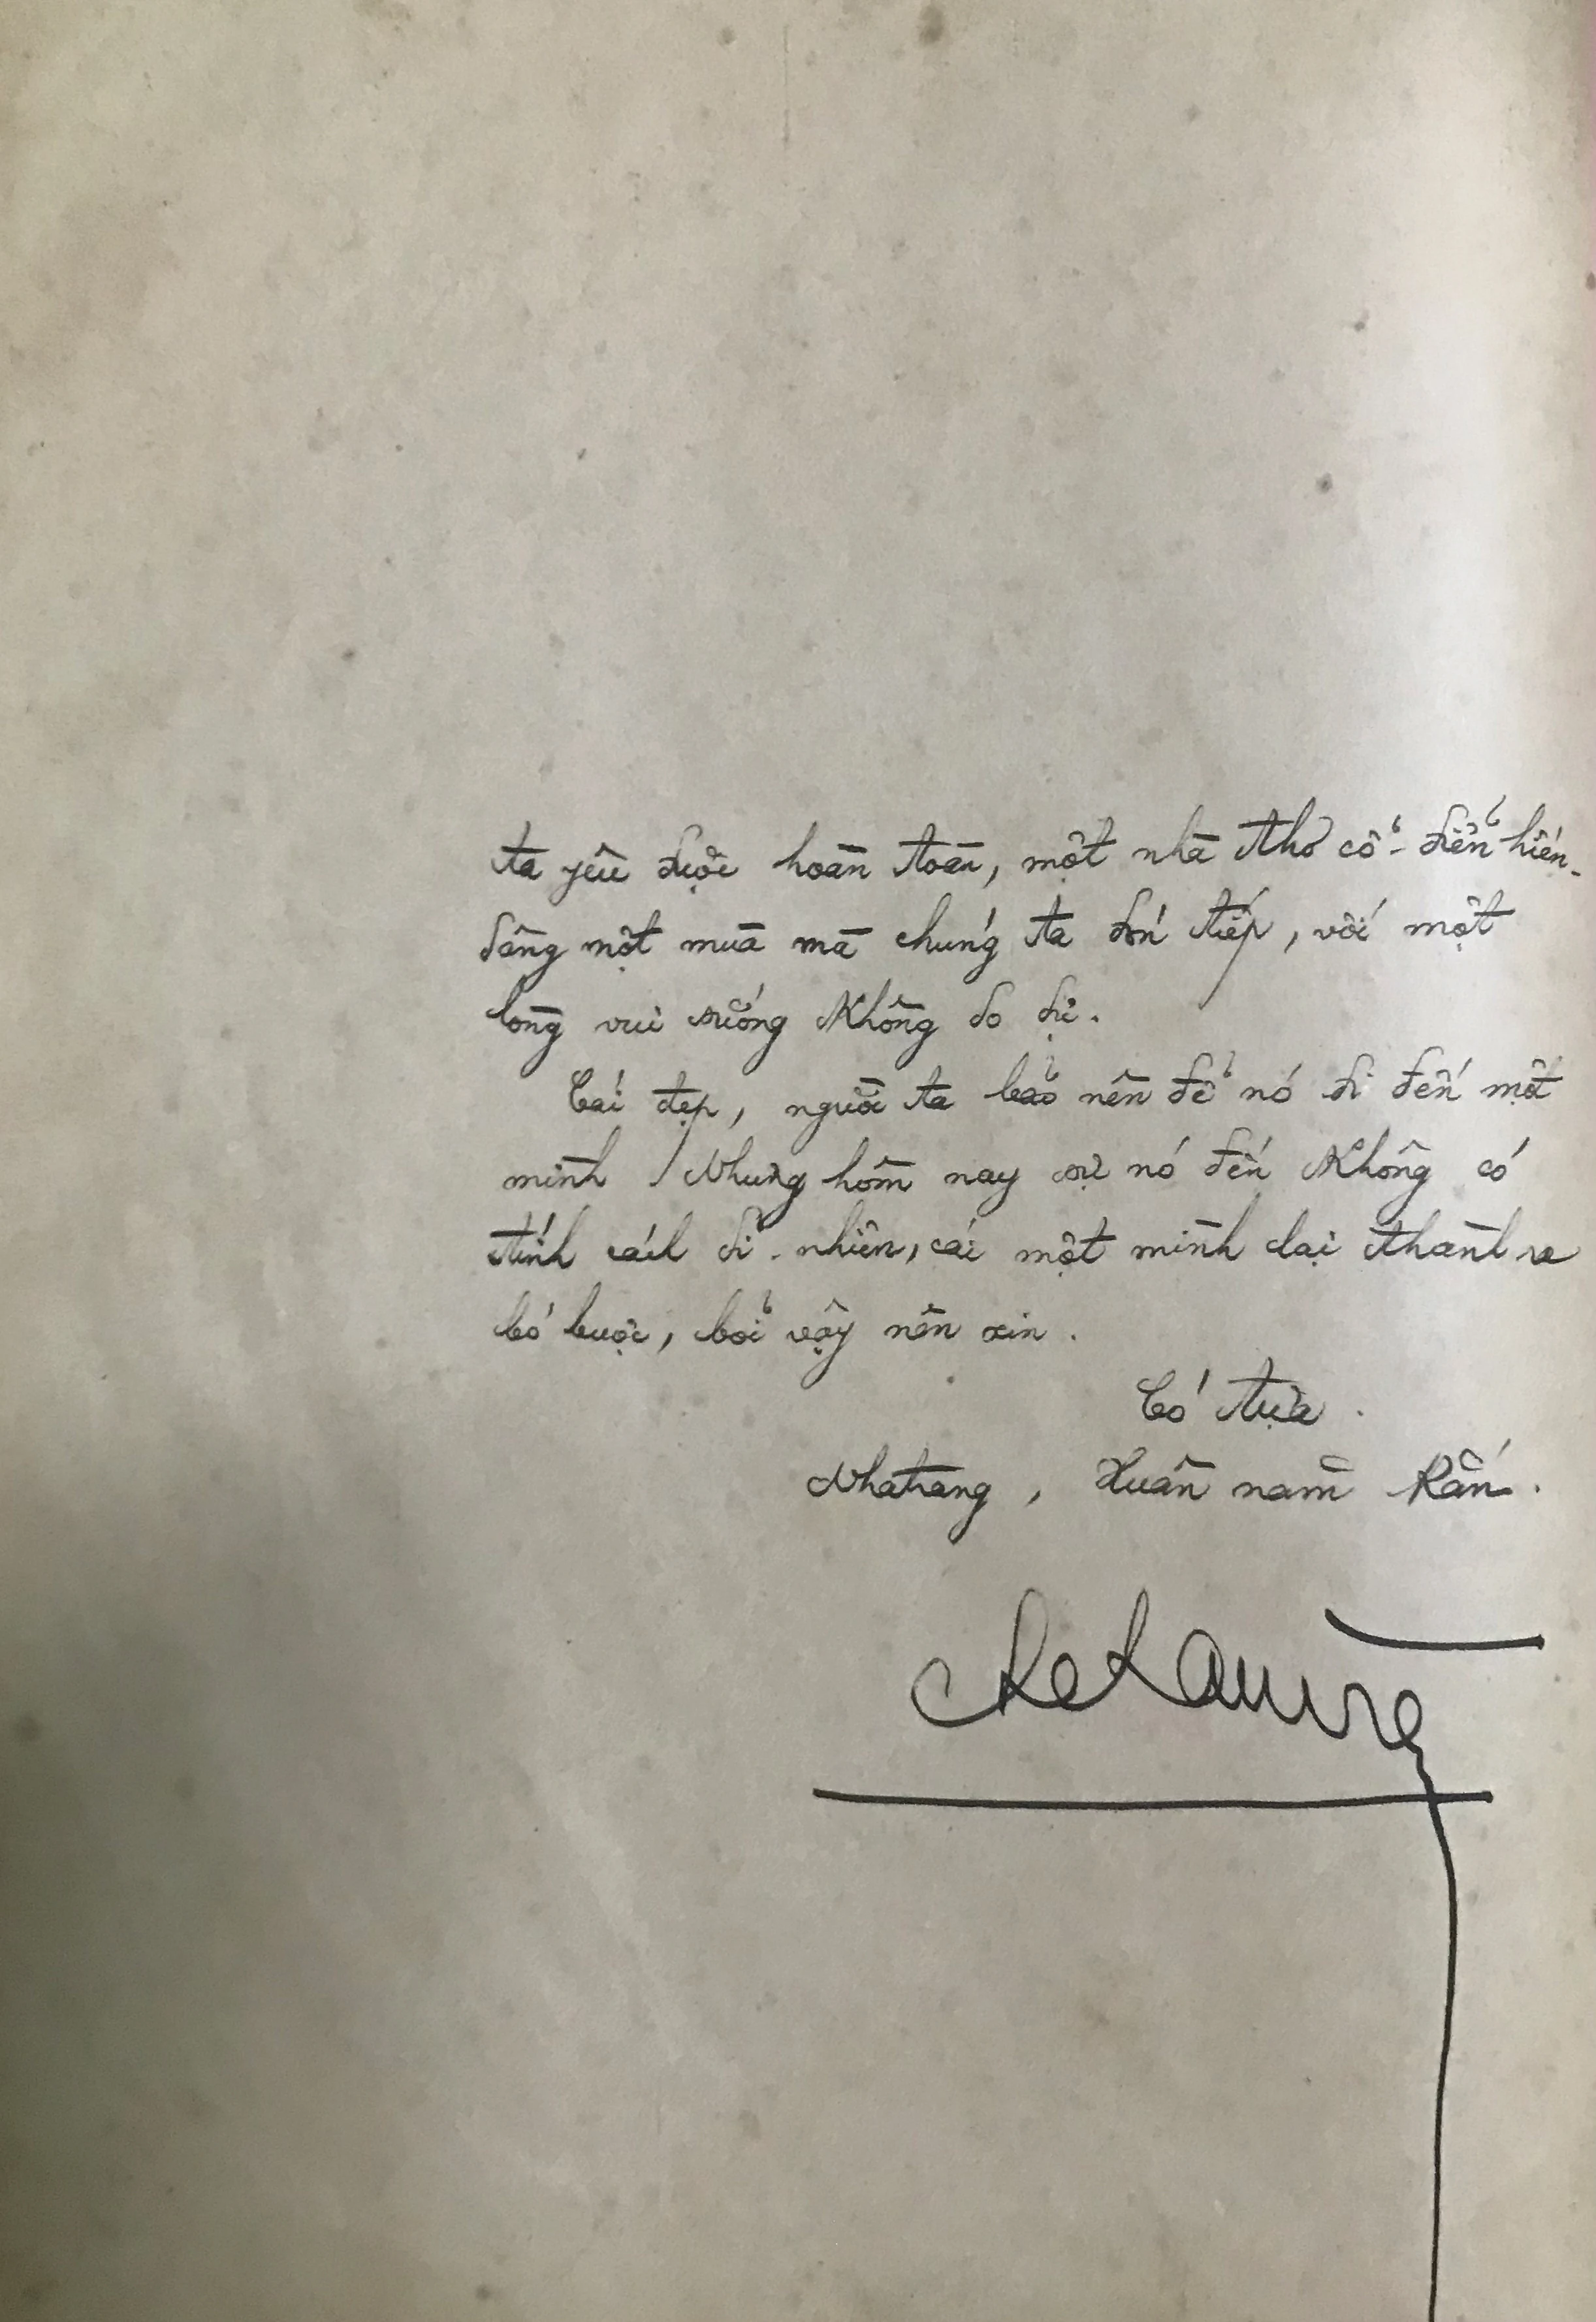 ta yêu được hoàn toàn, một nhà thơ cổ-điển hiến-
dâng một mùa mà chúng ta đón tiếp, với một
lòng vui sướng không đo đị.
Cái đẹp, người ta bảo nên để nó đi đến một
mình! Nhưng hôm nay sự nó đến không có
tính cách dĩ-nhiên, cái một mình lại thành ra
bó buộc, bởi vậy nên xin.
Có tựa.
Nhatrang, Xuân năm Rắn.